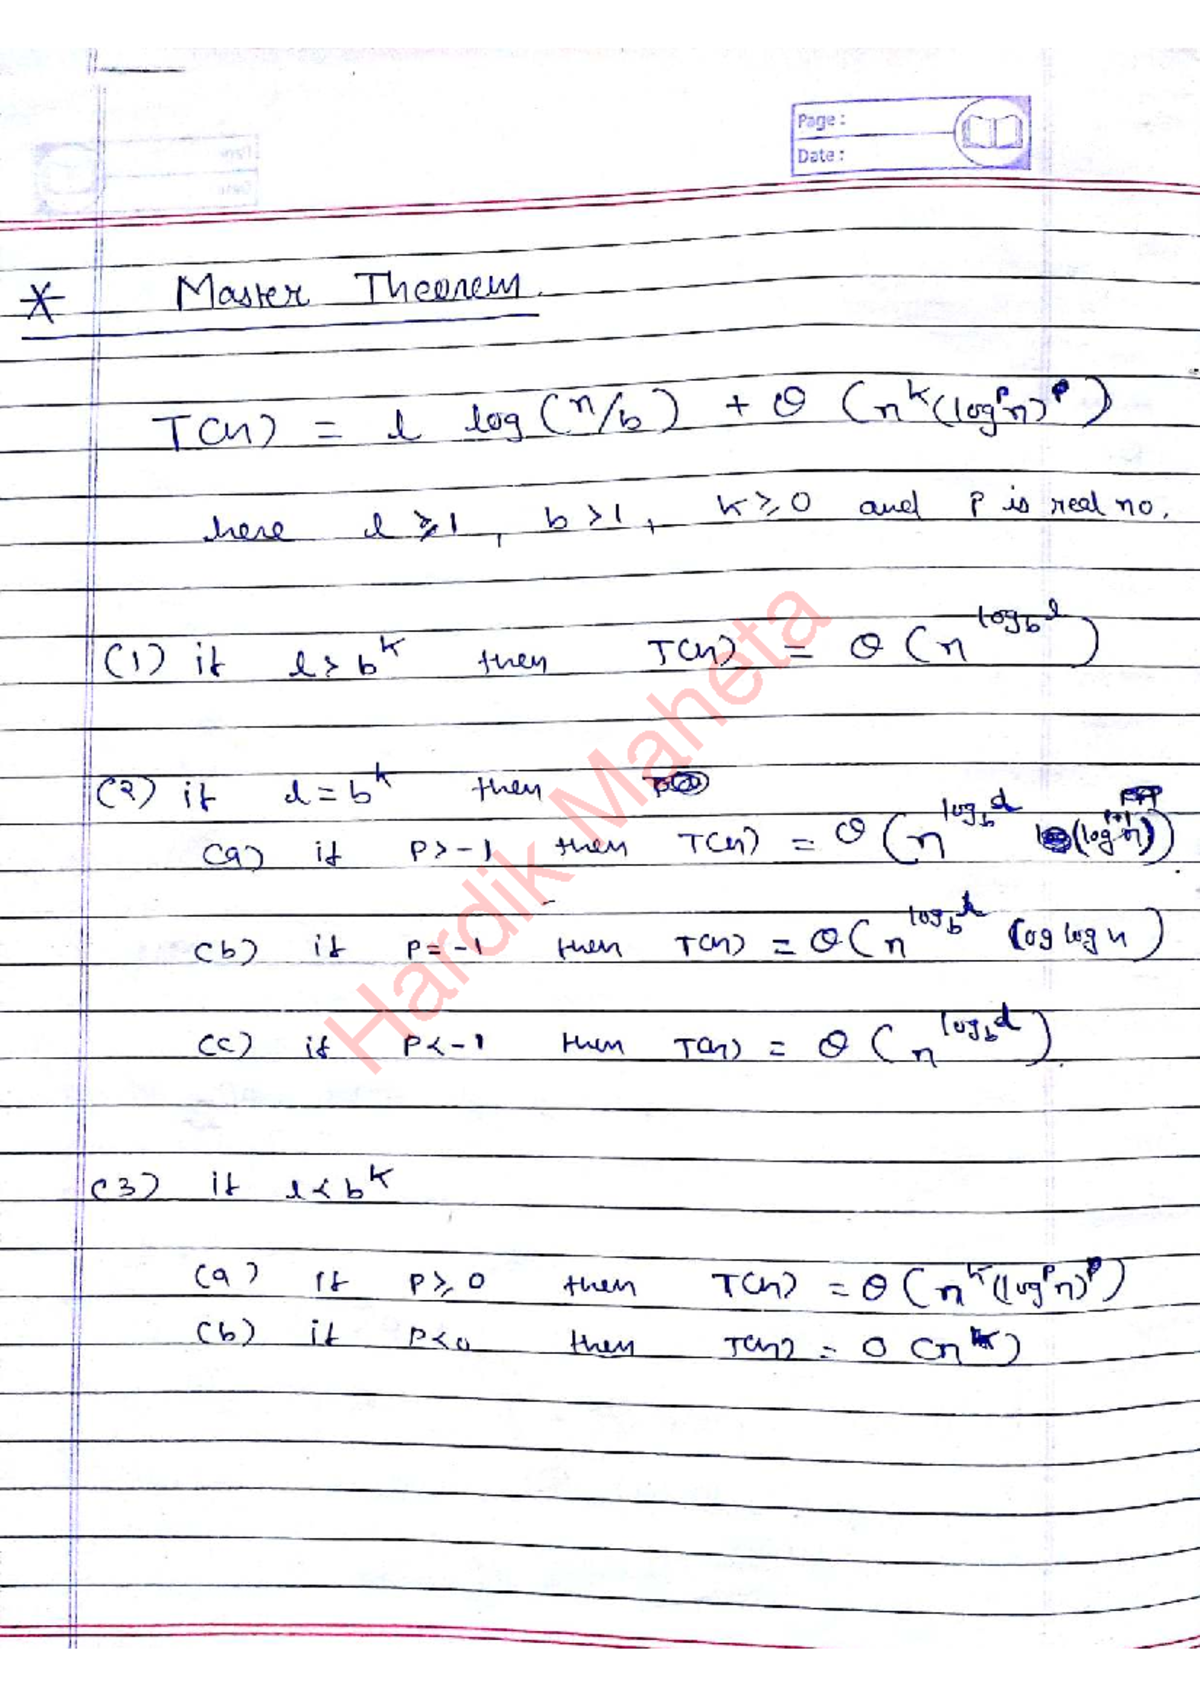 Page :
Date :
* Master Theorem.
T(n) = l log (n/b) + θ (n^k (log^p n))
here l ≥ 1, b > 1, k ≥ 0 and P is real no.
(1) if l > b^k then T(n) = θ (n^log_b l)
(2) if l = b^k then
(a) if P > -1 then T(n) = θ (n^log_b l (log^p+1 n))
(b) if P = -1 then T(n) = θ (n^log_b l log log n)
(c) if P < -1 then T(n) = θ (n^log_b l).
(3) if l < b^k
(a) if P ≥ 0 then T(n) = θ (n^k (log^p n))
(b) if P < 0 then T(n) = O (n^k)
Hardik Maheta